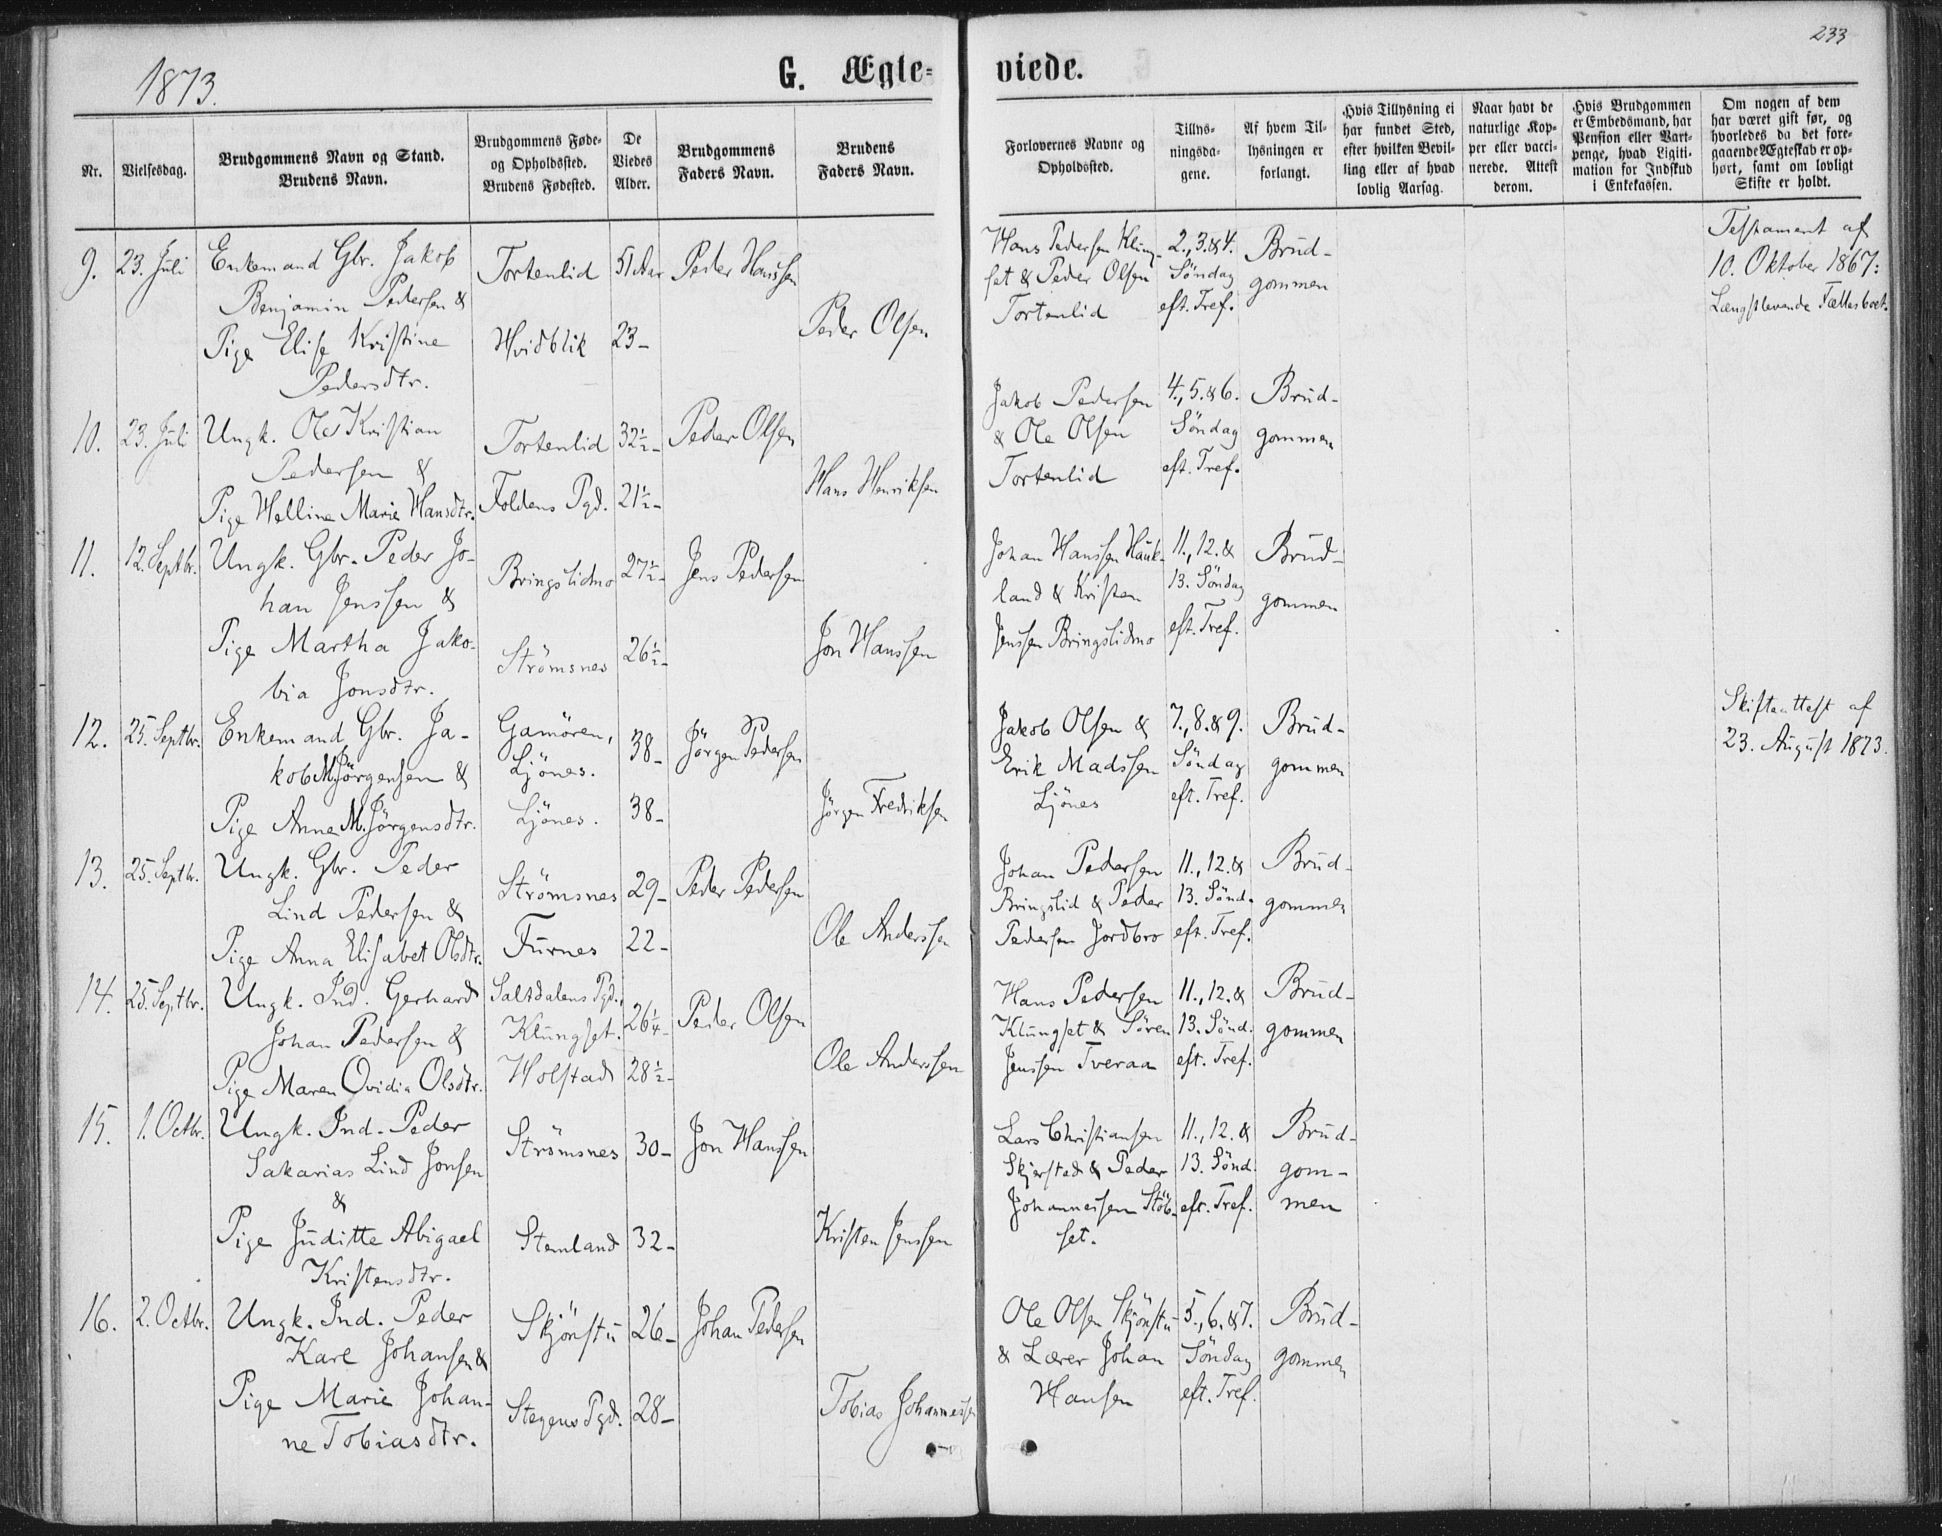 233
1873.
G. Ægte=
viede.
Nr.
Vielsesdag.
Brudgommens Navn og Stand.
Brudens Navn.
Brudgommens Føde-
og Opholdssted.
Brudens Fødested.
De
Viedes
Alder.
Brudgommens
Faders Navn.
Brudens
Faders Navn.
Forlovernes Navne og
Opholdssted.
Tillys-
ningsda-
gene.
Af hvem Til-
lysningen er
forlangt.
Hvis Tillysning ei
har fundet Sted,
efter hvilken Bevil-
ling eller af hvad
lovlig Aarsag.
Naar havt de
naturlige Kop-
per eller vacci-
nerede. Attest
derom.
Hvis Brudgommen
er Embedsmand, har
Pension eller Vart-
penge, hvad Ligiti-
mation for Indskud
i Enkekassen.
Om nogen af dem
har været gift før, og
hvorledes da det fore-
gaaende Ægteskab er op-
hørt, samt om lovligt
Skifte er holdt.
9. 23. Juli
Enkemand Gbr. Jakob
Benjamin Pedersen &
Pige Elise Kristine
Pedersdtr.
Tortenlid
Hvidblik
51 Aar
23-
Peder Hanssen
Peder Olsen
Hans Pedersen Klung-
set & Peder Olsen
Tortenlid
2., 3. & 4.
Söndag
eft. Tref.
Brud-
gommen
Testament af
10. Oktober 1867:
Længstlevende Fællesboet.
10. 23. Juli
Ungk. Ole Kristian
Pedersen &
Pige Helline Marie Hansdtr.
Tortenlid
Foldens Pgd.
32½-
21½-
Peder Olsen
Hans Henriksen
Jakob Pedersen
& Ole Olsen
Tortenlid
4., 5. & 6.
Söndag
eft. Tref.
Brud-
gommen
11. 12. Septbr.
Ungk. Gbr. Peder Jo-
han Jenssen &
Pige Martha Jako-
bia Jonsdtr.
Bringslidmo
Strömsnes
27½-
26½-
Jens Pedersen
Jon Hanssen
Johan Hanssen Hauk-
land & Kristen
Jenssen Bringslidmo
11., 12. &
13. Söndag
eft. Tref.
Brud-
gommen
12. 25. Septbr.
Enkemand Gbr. Ja-
kob M. Jörgensen &
Pige Anne M. Jörgensdtr.
Gamören,
Ljönes.
Ljönes.
38-
38-
Jörgen Pedersen
Jörgen Fredriksen
Jakob Olsen &
Erik Madssen
Ljönes
7., 8. & 9.
Söndag
eft. Tref.
Brud-
gommen
Skifteattest af
23. August 1873.
13. 25. Septbr.
Ungk. Gbr. Peder
Lind Pedersen &
Pige Anna Elisabet Olsdtr.
Strömsnes
Furnes
29-
22-
Peder Pedersen
Ole Anderssen
Johan Pedersen
Bringslid & Peder
Pedersen Jordbro
11., 12. &
13. Sönd.
eft. Tref.
Brud-
gommen
14. 25. Septbr.
Ungk. Ind. Gerhard
Johan Pedersen &
Pige Maren Ovidia Olsdtr.
Saltdalens Pgd.,
Klungset.
Holstad
26¼-
28½-
Peder Olsen
Ole Anderssen
Hans Pedersen
Klungset & Sören
Jenssen Tveraa
11., 12. &
13. Sönd.
eft. Tref.
Brud-
gommen
15. 1. Octbr.
Ungk. Ind. Peder
Sakarias Lind Jonsen
&
Pige Juditte Abigael
Kristensdtr.
Strömsnes
Stemland
30-
32-
Jon Hanssen
Kristen Jenssen
Lars Christiansen
Skjerstad & Peder
Johannessen Stöb-
set.
11., 12. &
13. Sönd.
eft. Tref.
Brud-
gom-
men
16. 2. Octbr.
Ungk. Ind. Peder
Karl Johansen &
Pige Marie Johan-
ne Tobiasdtr.
Skjönstu
Stegens Pgd.
26-
28-
Johan Pedersen
Tobias Johannessen
Ole Olsen Skjönstu
& Lærer Johan
Hansen
5., 6. & 7.
Söndag
eft. Tref.
Brud-
gommen